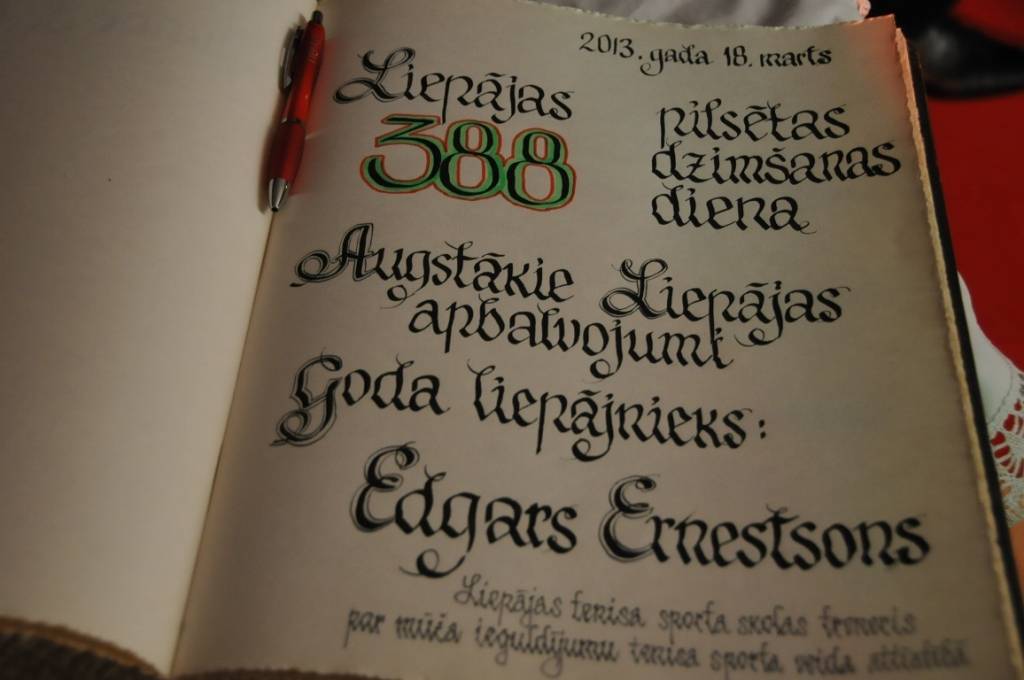 2013. gada 18. marts
Liepājas
388
pilsētas
dzimšanas
diena
Augstākie Liepājas
apbalvojumi
Goda liepājnieks:
Edgars Ernestsons
Liepājas tenisa sporta skolas treneris
par mūža ieguldījumu tenisa sporta veida attīstībā